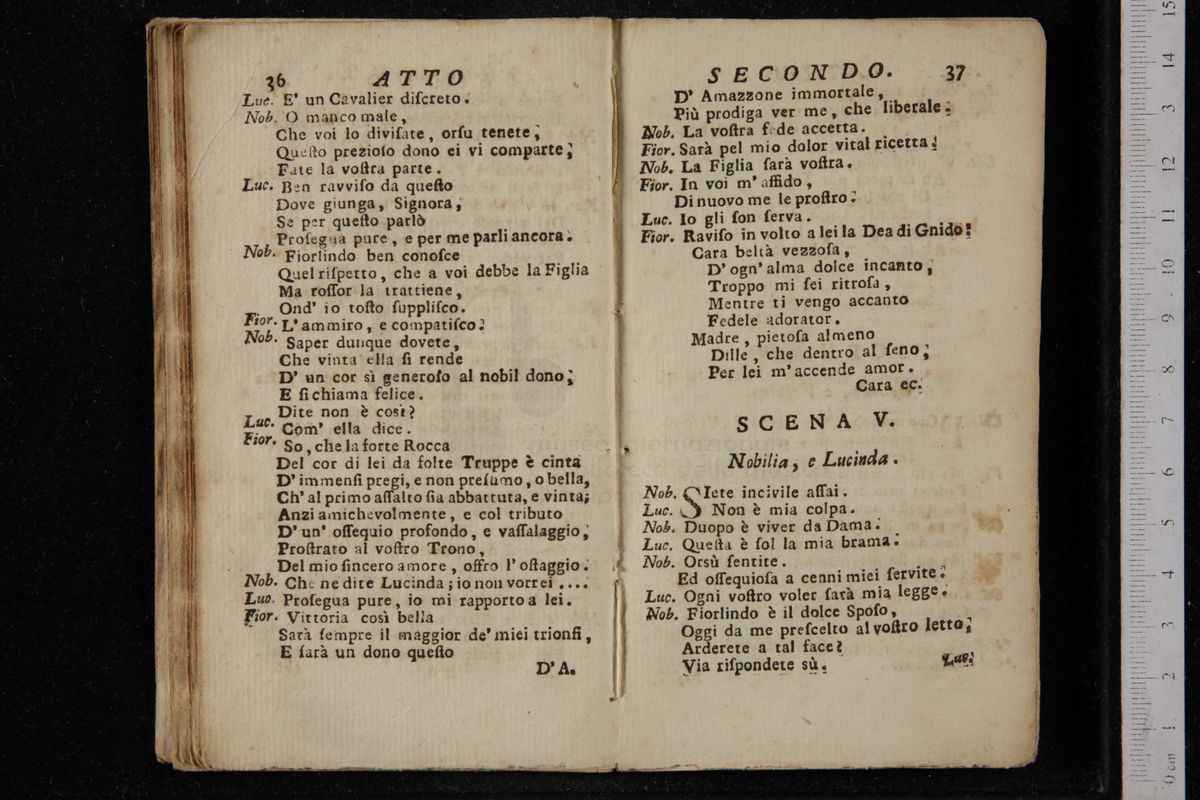 36 ATTO
Luc. E' un Cavalier diſcreto.
Nob. O manco male,
Che voi lo diviſate, orſu tenete;
Queſto prezioſo dono ei vi comparte;
Fate la voſtra parte.
Luc. Ben ravviſo da queſto
Dove giunga, Signora,
Se per queſto parlò
Proſegua pure, e per me parli ancora.
Nob. Fiorlindo ben conoſce
Quel riſpetto, che a voi debbe la Figlia
Ma roſſor la trattiene,
Ond' io toſto ſuppliſco.
Fior. L'ammiro, e compatiſco.
Nob. Saper dunque dovete,
Che vinta ella ſi rende
D' un cor sì generoſo al nobil dono;
E ſi chiama felice.
Dite non è così?
Luc. Com' ella dice.
Fior. So, che la forte Rocca
Del cor di lei da folte Truppe è cinta
D'immenſi pregi, e non preſumo, o bella,
Ch' al primo aſſalto ſia abbattuta, e vinta;
Anzi amichevolmente, e col tributo
D' un' oſſequio profondo, e vaſſalaggio,
Proſtrato al voſtro Trono,
Del mio ſincero amore, offro l'oſtaggio.
Nob. Che ne dite Lucinda; io non vorrei ....
Luc. Proſegua pure, io mi rapporto a lei.
Fior. Vittoria così bella
Sarà ſempre il maggior de' miei trionfi,
E ſarà un dono queſto
D'A.
SECONDO. 37
D' Amazzone immortale,
Più prodiga ver me, che liberale.
Nob. La voſtra fede accetta.
Fior. Sarà pel mio dolor vital ricetta.
Nob. La Figlia ſarà voſtra.
Fior. In voi m'affido,
Di nuovo me le proſtro.
Luc. Io gli ſon ſerva.
Fior. Raviſo in volto a lei la Dea di Gnido!
Cara beltà vezzoſa,
D' ogn' alma dolce incanto,
Troppo mi ſei ritroſa,
Mentre ti vengo accanto
Fedele adorator.
Madre, pietoſa almeno
Dille, che dentro al ſeno,
Per lei m'accende amor.
Cara ec.
SCENA V.
Nobilia, e Lucinda.
Nob. SIete incivile aſſai.
Luc. Non è mia colpa.
Nob. Duopo è viver da Dama.
Luc. Queſta è ſol la mia brama.
Nob. Orsù ſentite.
Ed oſſequioſa a cenni miei ſervite.
Luc. Ogni voſtro voler ſarà mia legge.
Nob. Fiorlindo è il dolce Spoſo,
Oggi da me preſcelto al voſtro letto;
Arderete a tal face?
Via riſpondete sù.
Luc.